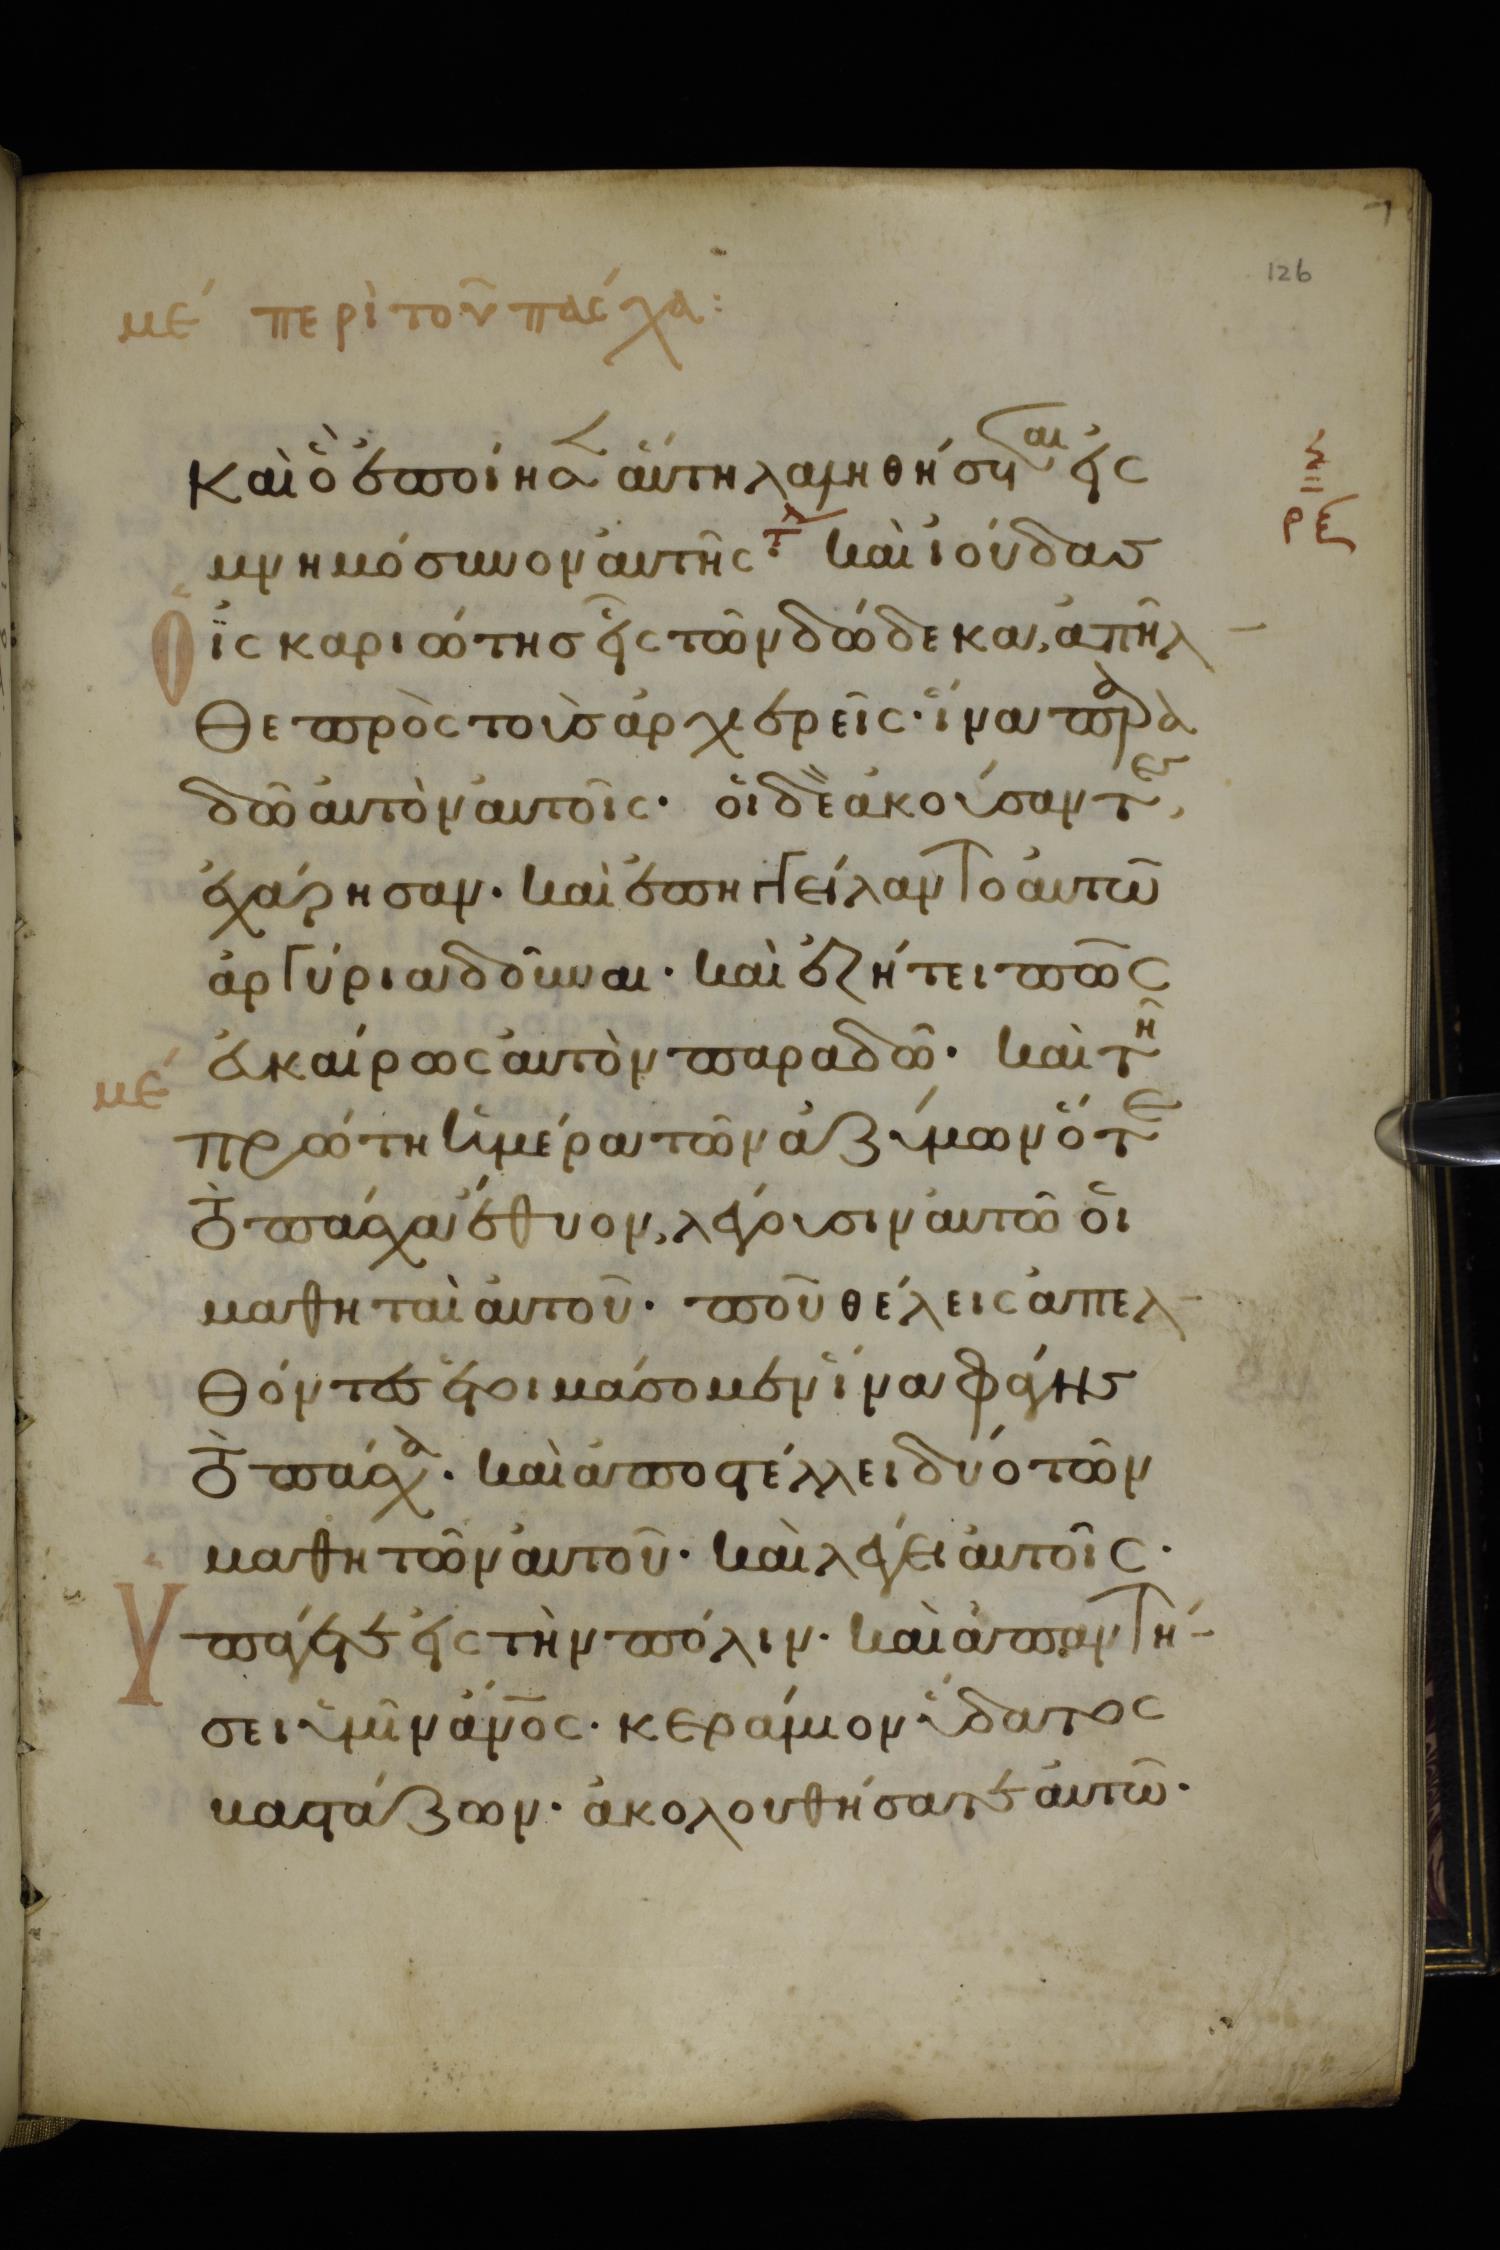 126
με´ περὶ τοῦ πάσχα:
καὶ ὃ ἐποίησεν αὕτη λαληθήσεται εἰς
μνημόσυνον αὐτῆς· καὶ ἰούδας
ἰσκαριώτης εἷς τῶν δώδεκα, ἀπῆλ
θε πρὸς τοὺς ἀρχιερεῖς· ἵνα παρα
δῶ αὐτὸν αὐτοῖς· οἱ δὲ ἀκούσαντες,
ἐχάρησαν· καὶ ἐπηγγείλαντο αὐτῶ
ἀργύρια δοῦναι· καὶ ἐζήτει πῶς
εὐκαίρως αὐτὸν παραδῶ· καὶ τῆ
με´
πρώτη ἡμέρα τῶν ἀζύμων ὅτε
τὸ πάσχα ἔθυον, λέγουσιν αὐτῶ οἱ
μαθηταὶ αὐτοῦ· ποῦ θέλεις ἀπελ
θόντες ἑτοιμάσομεν ἵνα φάγης
τὸ πάσχα· καὶ ἀποστέλλει δύο τῶν
μαθητῶν αὐτοῦ· καὶ λέγει αὐτοῖς·
Ὑπάγετε εἰς τὴν πόλιν· καὶ ἀπαντή
σει ὑμῖν ἄνος· κεράμιον ὕδατος
βαστάζων· ἀκολουθήσατε αὐτῶ·